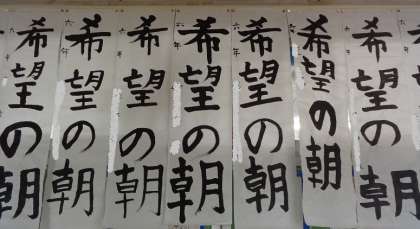 希望の朝
六年
希望の朝
六年
希望の朝
六年
希望の朝
六年
希望の朝
六年
希望の朝
六年
希望の朝
六年
希望の朝